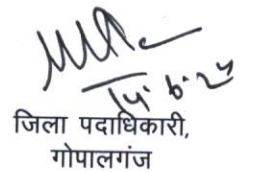 14.6.24
जिला पदाधिकारी,
गोपालगंज